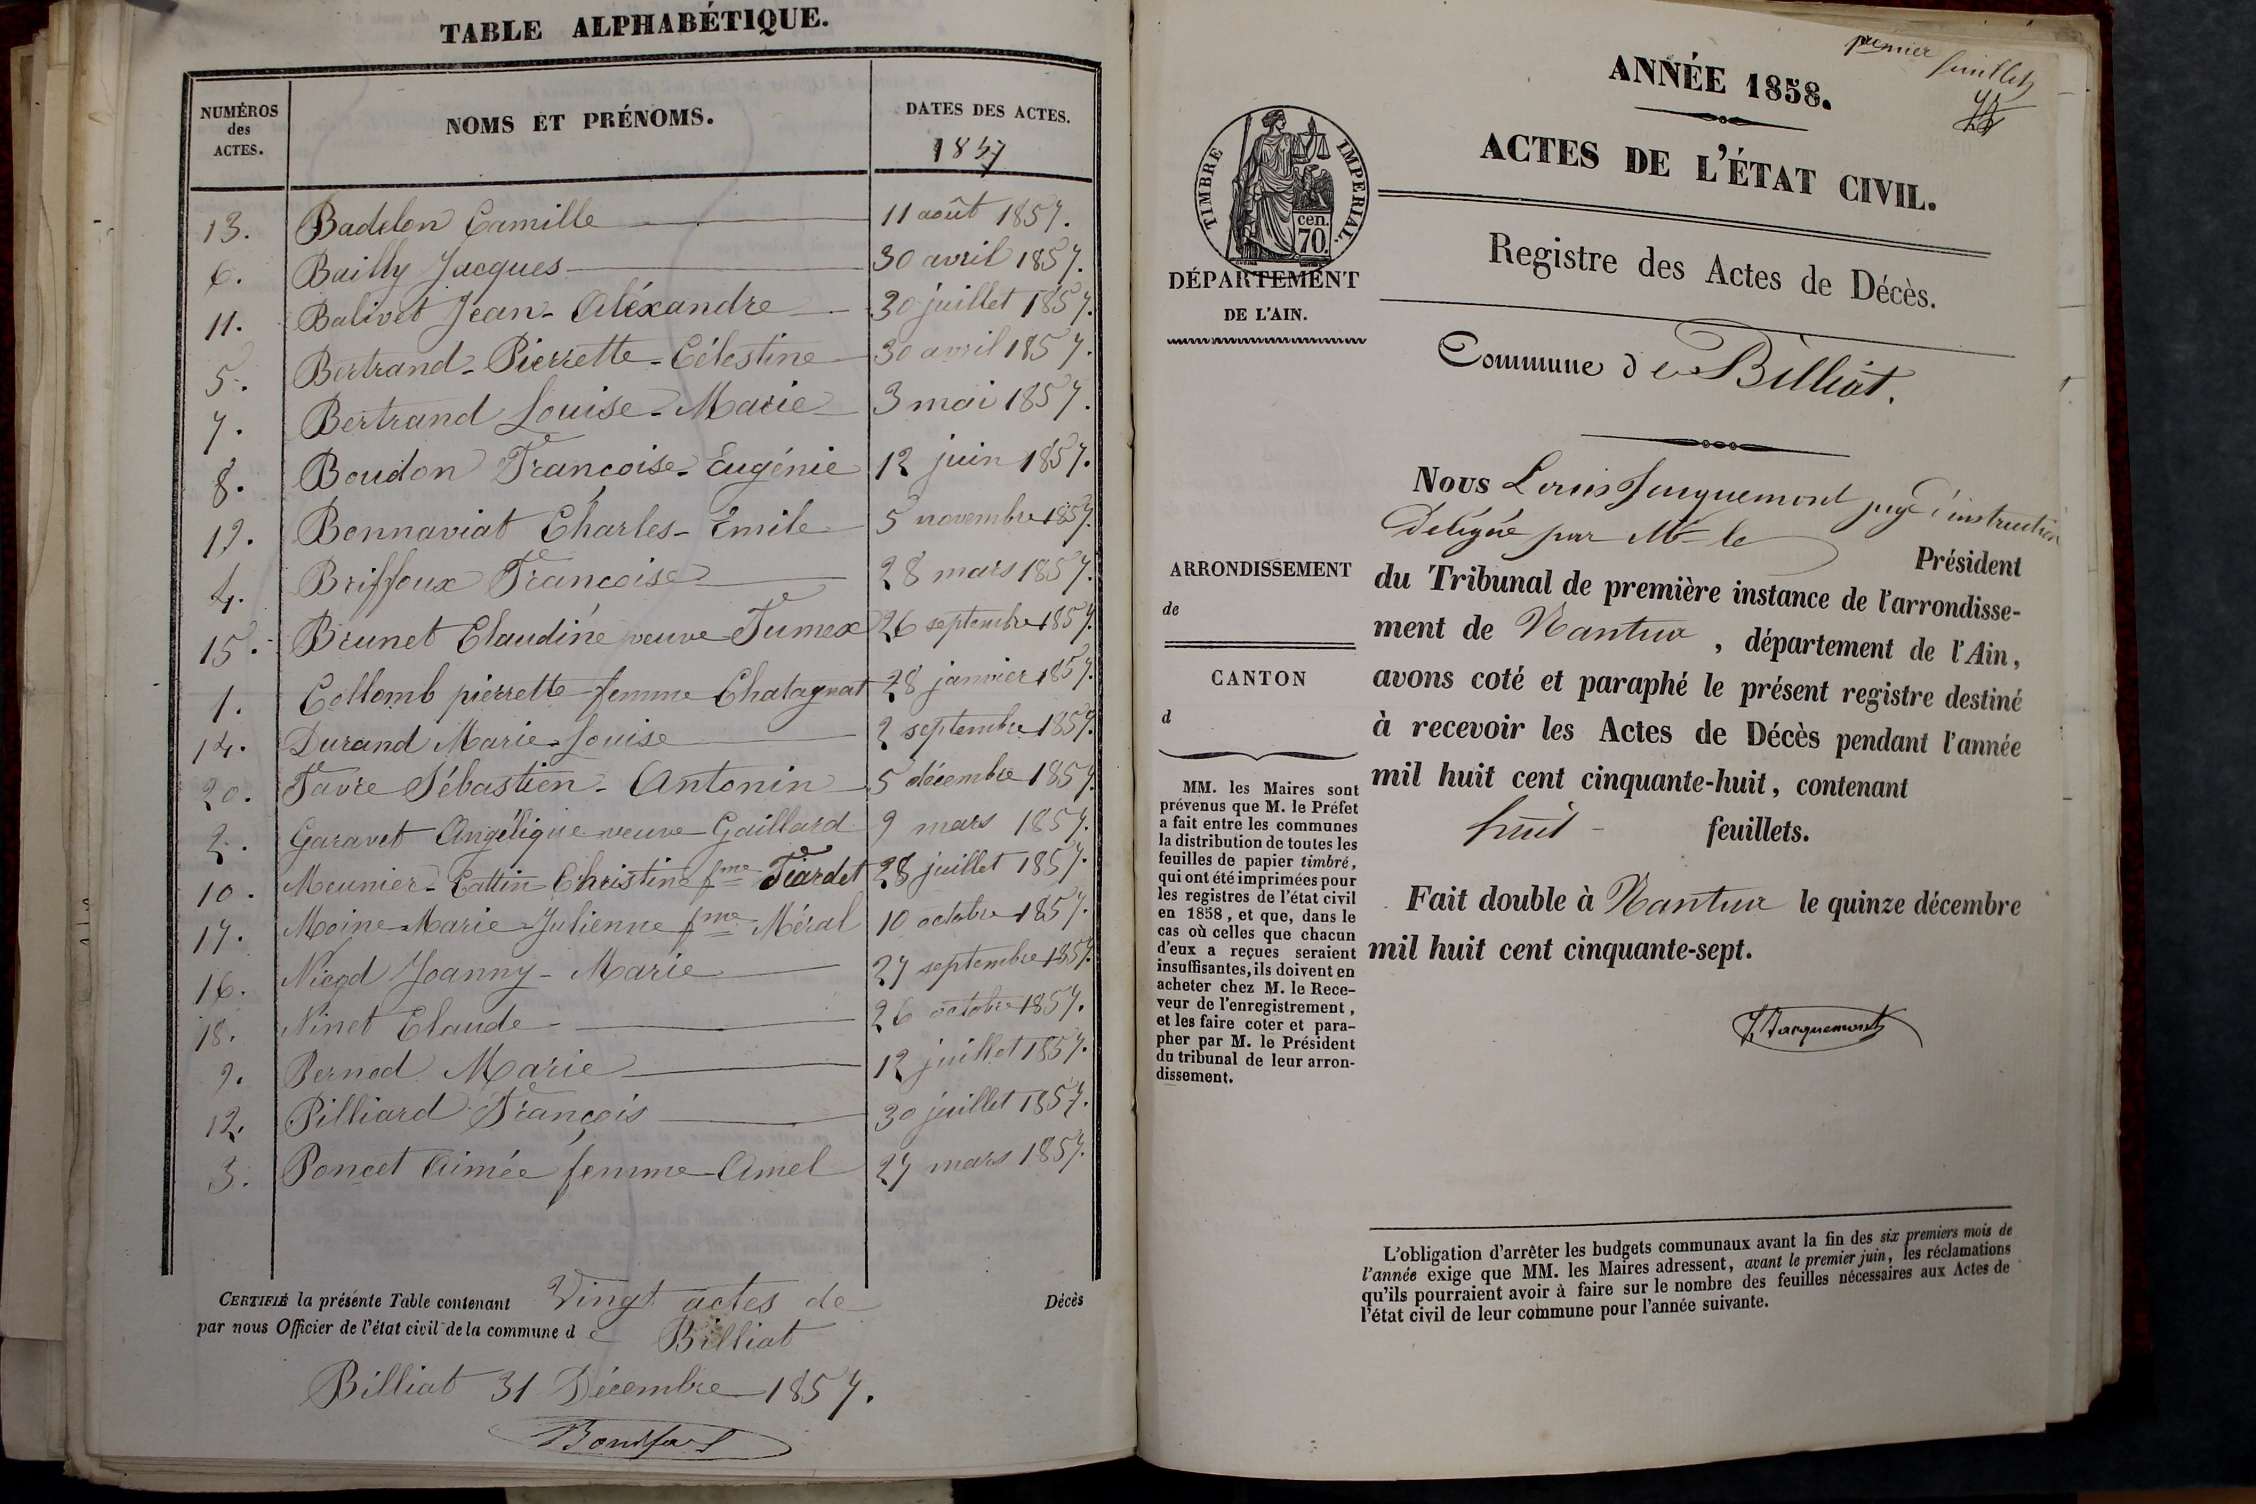 TABLE ALPHABÉTIQUE.
NUMÉROS des ACTES.
NOMS ET PRÉNOMS.
DATES DES ACTES.
1857
13. Badelon Camille 11 août 1857.
6. Bailly Jacques 30 avril 1857.
11. Balivet Jean-Aléxandre 30 juillet 1857.
5. Bertrand-Pierrette-Célestine 30 avril 1857.
7. Bertrand Louise-Marie 3 mai 1857.
8. Boudon Françoise-Eugénie 12 juin 1857.
19. Bonnaviat Charles-Emile 5 novembre 1857.
4. Briffoux Françoise 28 mars 1857.
15. Brunet Claudine veuve Jumex 26 septembre 1857.
1. Collomb pierrette femme Chatagnat 28 janvier 1857.
14. Durand Marie-Louise 2 septembre 1857.
20. Favre Sébastien-Antonin 5 décembre 1857.
2. Garavet Angélique veuve Gaillard 9 mars 1857.
10. Meunier-Cattin Christine fme Tiardet 28 juillet 1857.
17. Moine Marie-Julienne fme Méral 10 octobre 1857.
16. Nicod Joanny-Marie 27 septembre 1857.
18. Ninet Claude 26 octobre 1857.
9. Pernod Marie 12 juillet 1857.
12. Pilliard François 30 juillet 1857.
3. Poncet Aimée femme Amel 27 mars 1857.
CERTIFIÉ la présente Table contenant Vingt actes de Décès
par nous Officier de l'état civil de la commune de Billiat
Billiat 31 Décembre 1857.
premier feuillet
ANNÉE 1858.
ACTES DE L'ÉTAT CIVIL.
TIMBRE IMPERIAL.
cen.
70.
DÉPARTEMENT
DE L'AIN.
Registre des Actes de Décès.
Commune de Billiat.
Nous Louis Jacquemont juge d'instruction
Délégué par Mr le Président
du Tribunal de première instance de l'arrondisse-
ment de Nantua, département de l'Ain,
avons coté et paraphé le présent registre destiné
à recevoir les Actes de Décès pendant l'année
mil huit cent cinquante-huit, contenant
huit feuillets.
Fait double à Nantua le quinze décembre
mil huit cent cinquante-sept.
Jacquemont
ARRONDISSEMENT
de
CANTON
d
MM. les Maires sont
prévenus que M. le Préfet
a fait entre les communes
la distribution de toutes les
feuilles de papier timbré,
qui ont été imprimées pour
les registres de l'état civil
en 1858, et que, dans le
cas où celles que chacun
d'eux a reçues seraient
insuffisantes, ils doivent en
acheter chez M. le Rece-
veur de l'enregistrement,
et les faire coter et para-
pher par M. le Président
du tribunal de leur arron-
dissement.
L'obligation d'arrêter les budgets communaux avant la fin des six premiers mois de
l'année exige que MM. les Maires adressent, avant le premier juin, les réclamations
qu'ils pourraient avoir à faire sur le nombre des feuilles nécessaires aux Actes de
l'état civil de leur commune pour l'année suivante.